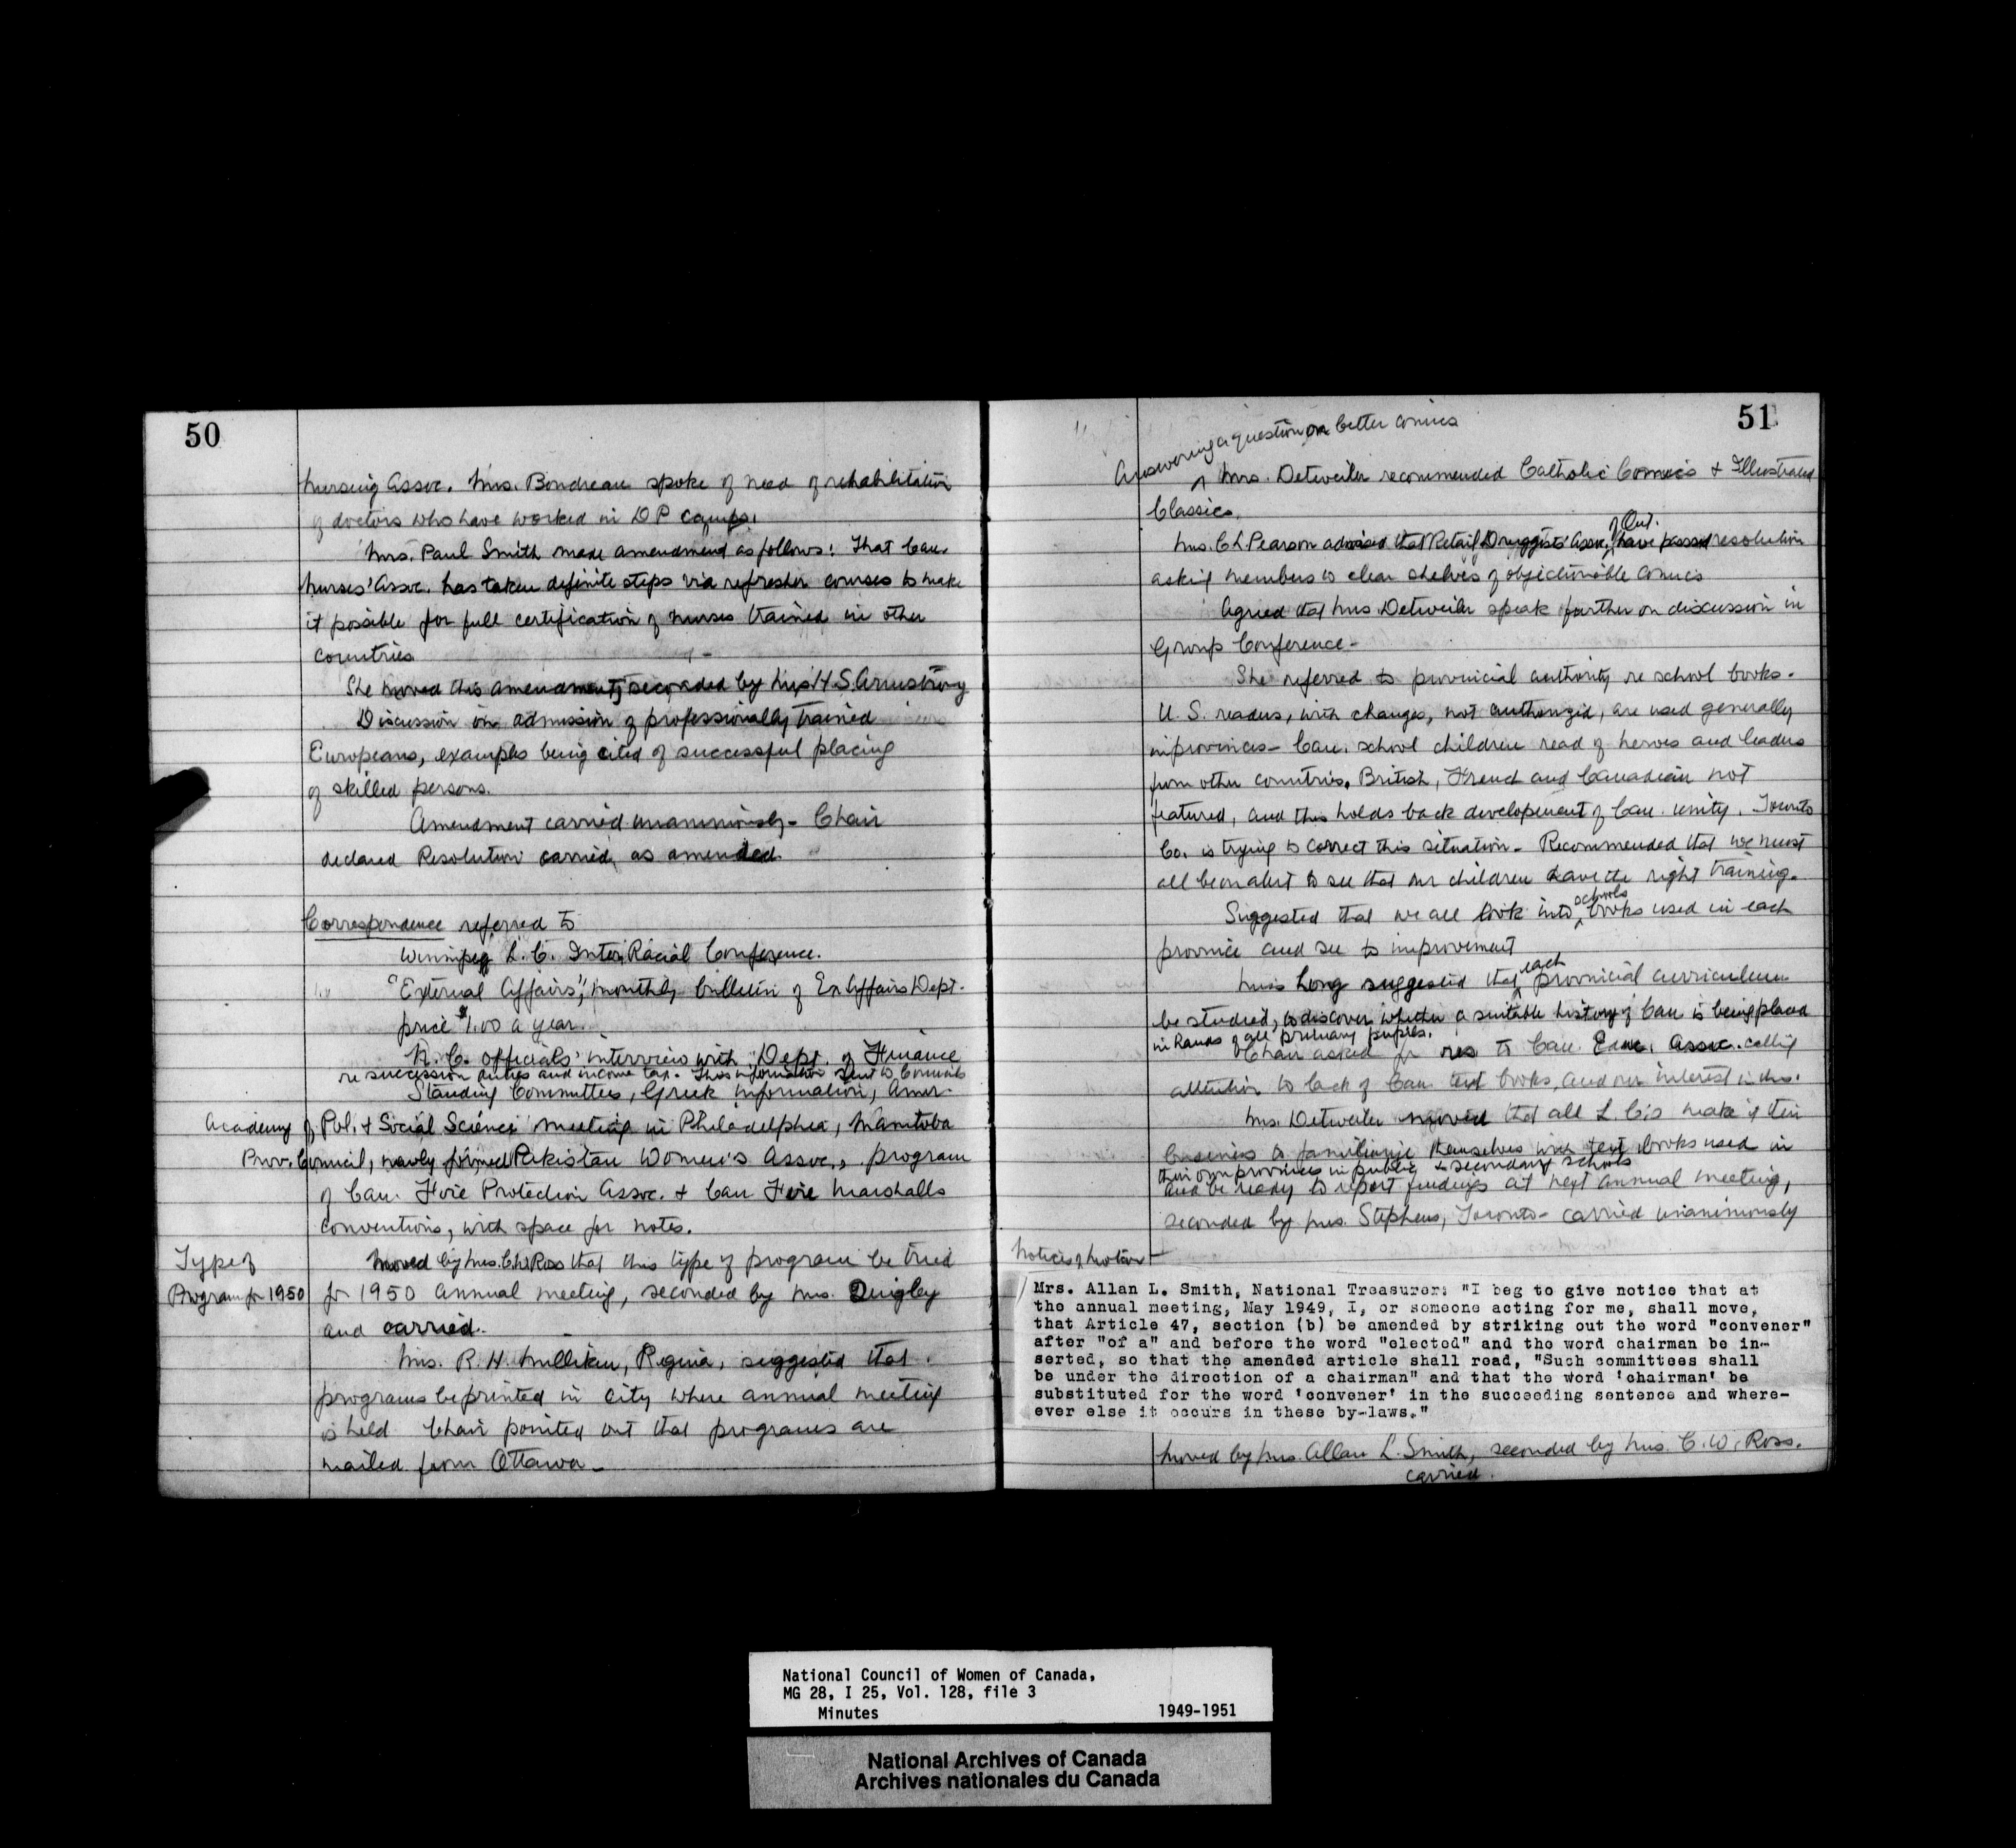 50
Nursing Assoc. Mrs. Boudreau spoke of need of rehabilitation
of doctors who have worked in D P camps.
Mrs. Paul Smith made amendment as follows: That Can.
Nurses' Assoc. has taken definite steps via refresher courses to make
it possible for full certification of nurses trained in other
countries
She moved this amendment, seconded by Mrs H.S. Armstrong
Discussion on admission of professionally trained
Europeans, examples being cited of successful placing
of skilled persons.
Amendment carried unanimously - Chair
declared Resolution carried, as amended.
Correspondence referred to
Winnipeg L. C. Inter Racial Conference.
"External Affairs", monthly bulletin of Ex Affairs Dept.
price $1.00 a year.
N. C. officials' interview with Dept. of Finance
re succession duties and income tax. This information sent to Councils
Standing Committees, Greek information, Amer.
Academy of Pol. & Social Science meeting in Philadelphia, Manitoba
Prov. Council, newly formed Pakistan Women's Assoc., program
of Can. Fire Protection Assoc. & Can Fire Marshalls
conventions, with space for notes.
Type of
Program for 1950
Moved by Mrs. C.W. Ross that this type of program be tried
for 1950 annual meeting, seconded by Mrs. Quigley
and carried.
Mrs. R. H. Milliken, Regina, suggested that
programs be printed in city where annual meeting
is held Chair pointed out that programs are
mailed from Ottawa -
51
Answering a question on better comics
Mrs. Detweiler recommended Catholic Comics & Illustrated
Classics.
Mrs. C L Pearson advised that Retail Druggists' Assoc. of Ont. have passed resolution
asking members to clear shelves of objectionable comics
Agreed that Mrs. Detweiler speak further on discussion in
Group Conference -
She referred to provincial authority re school books.
U. S. readers, with changes, not authorized, are used generally
in provinces - Can. school children read of heroes and leaders
from other countries. British, French and Canadian not
featured, and this holds back developement of Can. unity. Toronto
Co. is trying to correct this situation - Recommended that we must
all be on alert to see that our children have the right training.
Suggested that we all look into schools books used in each
province and see to improvement
Miss Long suggested that each provincial curriculum
be studied, to discover whether a suitable history of Can is being placed
in hands of all primary pupils.
Chair asked for res to Can. Educ. Assoc. calling
attention to lack of Can text books, and our interest in this.
Mrs. Detweiler moved that all L. C.s make it their
business to familiarize themselves with text books used in
their own provinces in public & secondary schools
and be ready to report findings at next annual meeting,
seconded by Mrs. Stephens, Toronto - carried unanimously
Notice of Motion
Mrs. Allan L. Smith, National Treasurer: "I beg to give notice that at
the annual meeting, May 1949, I, or someone acting for me, shall move,
that Article 47, section (b) be amended by striking out the word "convener"
after "of a" and before the word "elected" and the word chairman be in-
serted, so that the amended article shall read, "Such committees shall
be under the direction of a chairman" and that the word 'chairman' be
substituted for the word 'convener' in the succeeding sentence and where-
ever else it occurs in these by-laws."
Moved by Mrs. Allan L. Smith, seconded by Mrs. C. W. Ross.
carried.
National Council of Women of Canada,
MG 28, I 25, Vol. 128, file 3
Minutes 1949-1951
National Archives of Canada
Archives nationales du Canada